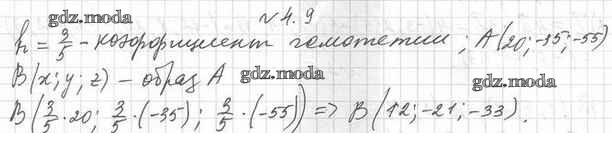 №4.9
gdz.moda
k = 3/5 - коэффициент гомотетии; A(20; -35; -55)
gdz.moda
B(x; y; z) - образ A
gdz.moda
gdz.moda
B(3/5 · 20; 3/5 · (-35); 3/5 · (-55)) => B(12; -21; -33).